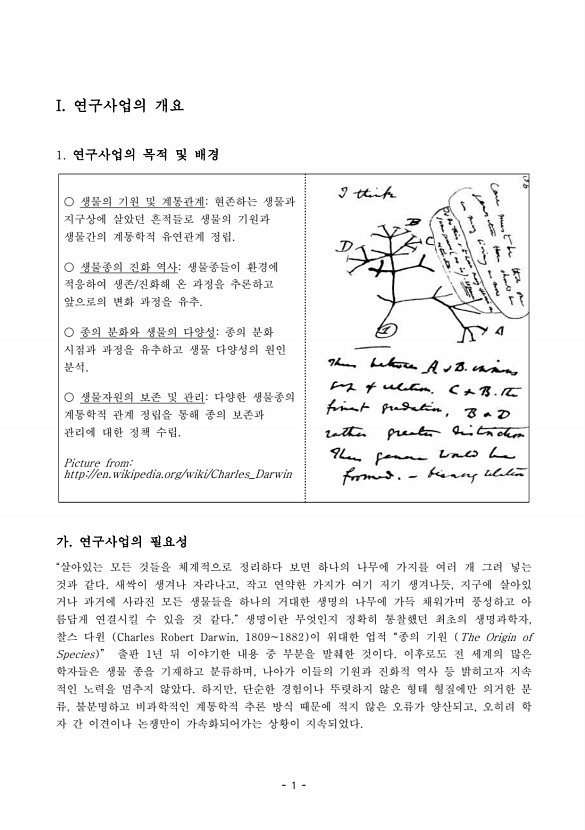 I. 연구사업의 개요
1. 연구사업의 목적 및 배경
○ 생물의 기원 및 계통관계: 현존하는 생물과
지구상에 살았던 흔적들로 생물의 기원과
생물간의 계통학적 유연관계 정립.
○ 생물종의 진화 역사: 생물종들이 환경에
적응하여 생존/진화해 온 과정을 추론하고
앞으로의 변화 과정을 유추.
○ 종의 분화와 생물의 다양성: 종의 분화
시점과 과정을 유추하고 생물 다양성의 원인
분석.
○ 생물자원의 보존 및 관리: 다양한 생물종의
계통학적 관계 정립을 통해 종의 보존과
관리에 대한 정책 수립.
Picture from:
http://en.wikipedia.org/wiki/Charles_Darwin
I think
B
D
C
A
1
Thus between A & B. immens
gap of relation. C & B. the
finest gradation, B & D
rather greater distinction
Thus genera would be
formed. — bearing relation
가. 연구사업의 필요성
“살아있는 모든 것들을 체계적으로 정리하다 보면 하나의 나무에 가지를 여러 개 그려 넣는
것과 같다. 새싹이 생겨나 자라나고, 작고 연약한 가지가 여기 저기 생겨나듯, 지구에 살아있
거나 과거에 사라진 모든 생물들을 하나의 거대한 생명의 나무에 가득 채워가며 풍성하고 아
름답게 연결시킬 수 있을 것 같다.” 생명이란 무엇인지 정확히 통찰했던 최초의 생명과학자,
찰스 다윈 (Charles Robert Darwin, 1809~1882)이 위대한 업적 “종의 기원 (The Origin of
Species)” 출판 1년 뒤 이야기한 내용 중 부분을 발췌한 것이다. 이후로도 전 세계의 많은
학자들은 생물 종을 기재하고 분류하며, 나아가 이들의 기원과 진화적 역사 등 밝히고자 지속
적인 노력을 멈추지 않았다. 하지만, 단순한 경험이나 뚜렷하지 않은 형태 형질에만 의거한 분
류, 불분명하고 비과학적인 계통학적 추론 방식 때문에 적지 않은 오류가 양산되고, 오히려 학
자 간 이견이나 논쟁만이 가속화되어가는 상황이 지속되었다.
- 1 -